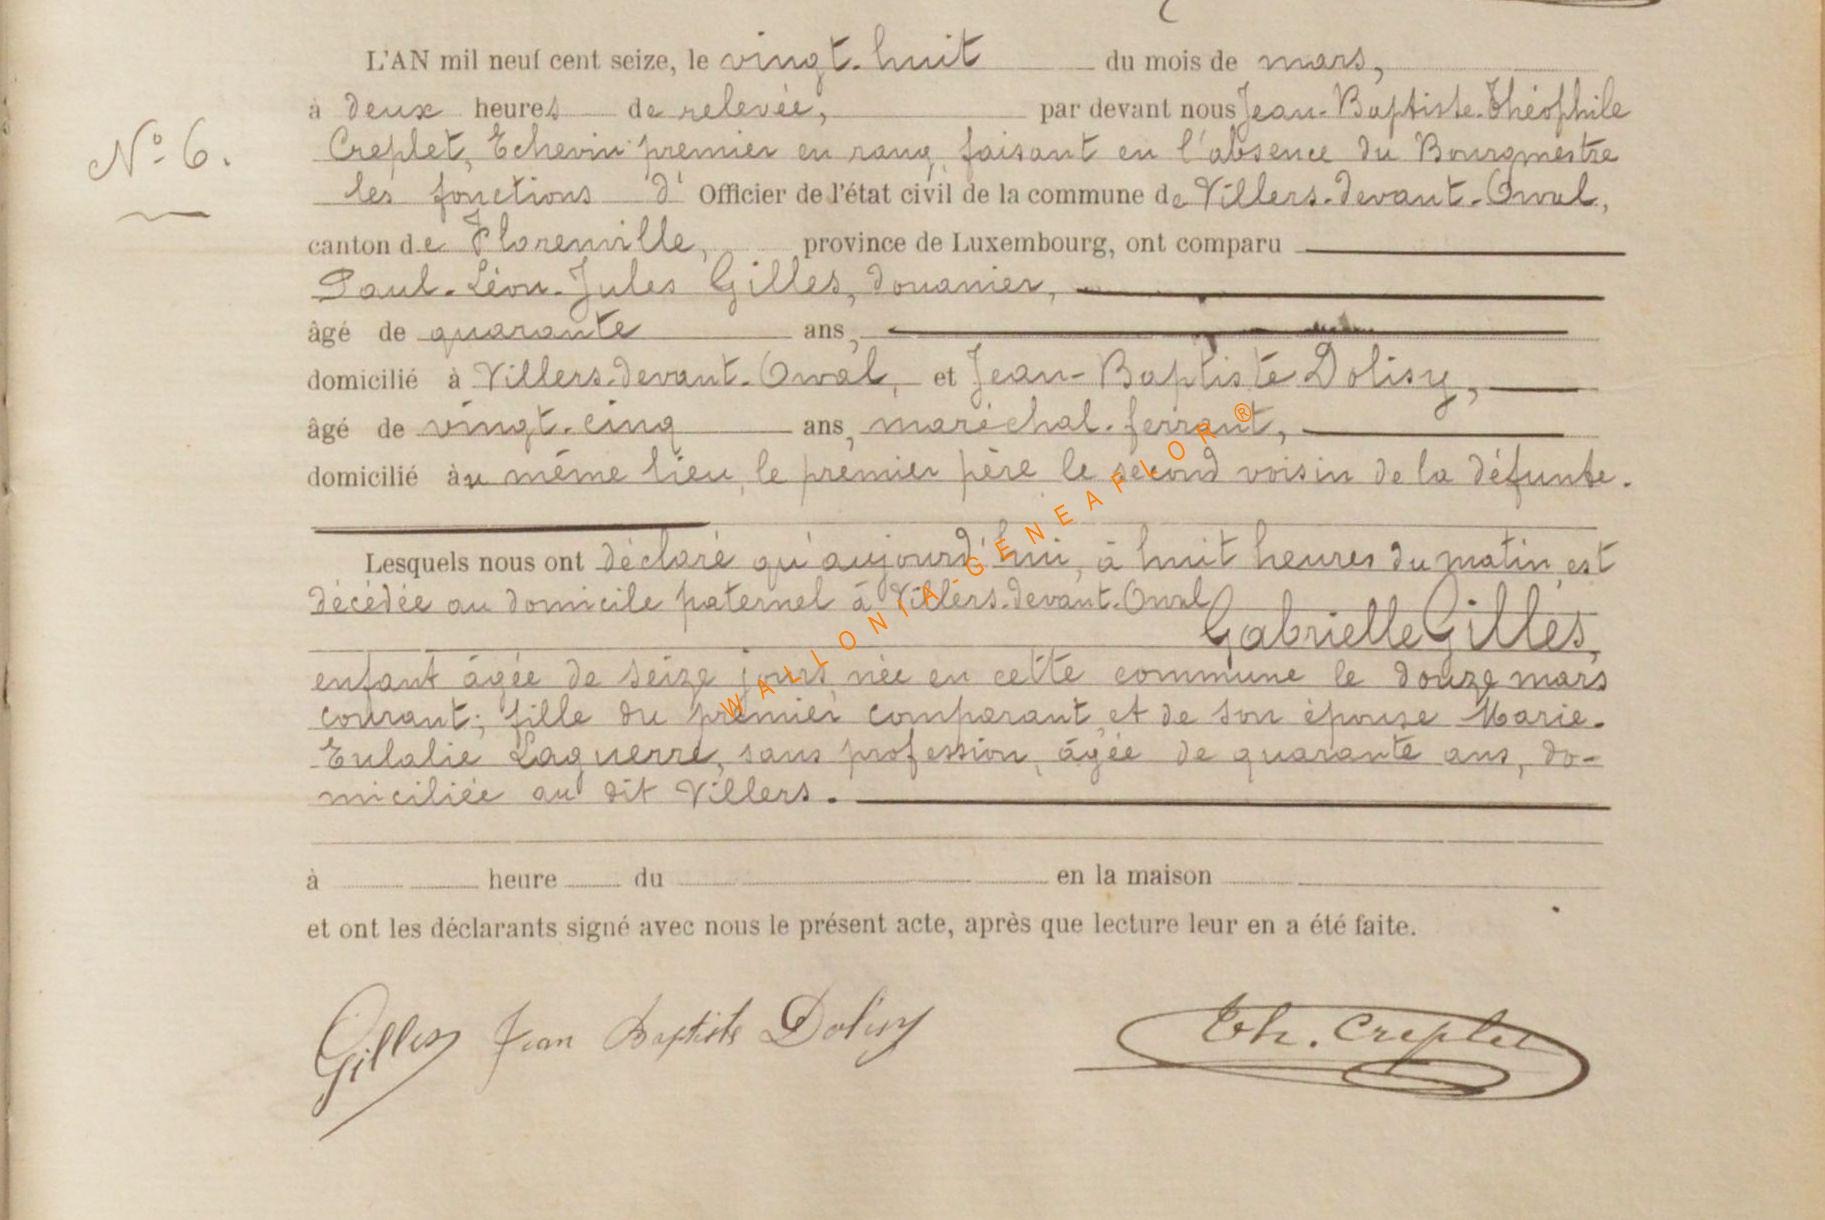 L'AN mil neuf cent seize, le vingt-huit du mois de mars,
à deux heures de relevée, par devant nous Jean-Baptiste-Théophile
N° 6.
Creplet, Echevin premier en rang, faisant en l'absence du Bourgmestre
les fonctions d' Officier de l'état civil de la commune de Villers-devant-Orval,
canton de Florenville, province de Luxembourg, ont comparu
Paul-Léon-Jules Gilles, douanier,
âgé de quarante ans,
domicilié à Villers-devant-Orval, et Jean-Baptiste Dolisy,
âgé de vingt-cinq ans, maréchal-ferrant,
domicilié au même lieu, le premier père le second voisin de la défunte.
Lesquels nous ont déclaré qu'aujourd'hui, à huit heures du matin, est
décédée au domicile paternel à Villers-devant-Orval
Gabrielle Gilles,
enfant âgée de seize jours, née en cette commune le douze mars
courant; fille du premier comparant et de son épouse Marie-
Eulalie Laguerre, sans profession, âgée de quarante ans, do-
miciliée au dit Villers.
à heure du en la maison
et ont les déclarants signé avec nous le présent acte, après que lecture leur en a été faite.
Gilles Jean Baptiste Dolisy Th. Creplet
WALLONIA-GENEAFLOR®